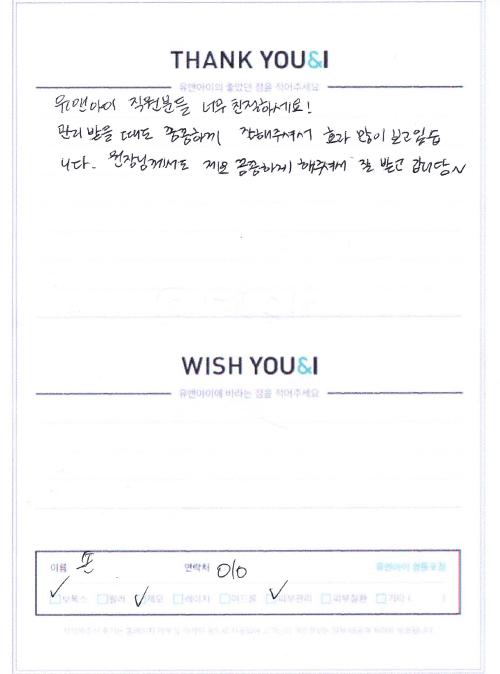 THANK YOU&I
유앤아이의 좋았던 점을 적어주세요
유앤아이 직원분들 너무 친절하세요!
관리 받을 때도 꼼꼼하게 잘해주셔서 효과 많이 보고있습
니다. 원장님께서도 제모 꼼꼼하게 해주셔서 잘 받고 갑니당~
WISH YOU&I
유앤아이에 바라는 점을 적어주세요
이름 연락처 010 유앤아이 영등포점
보톡스 필러 제모 레이저 여드름 피부관리 피부질환 기타 ( )